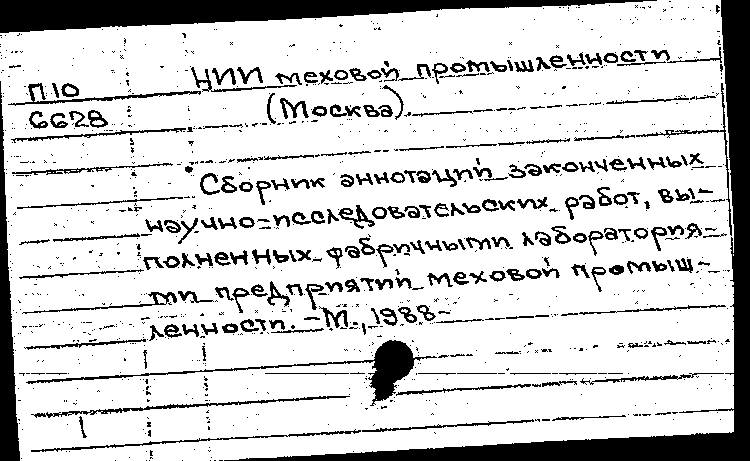 П10
6628
НИИ меховой промышленности
(Москва).
Сборник аннотаций законченных
научно-исследовательских работ, вы-
полненных фабричными лаборатория-
ми предприятий меховой промыш-
ленности. – М., 1988-
1